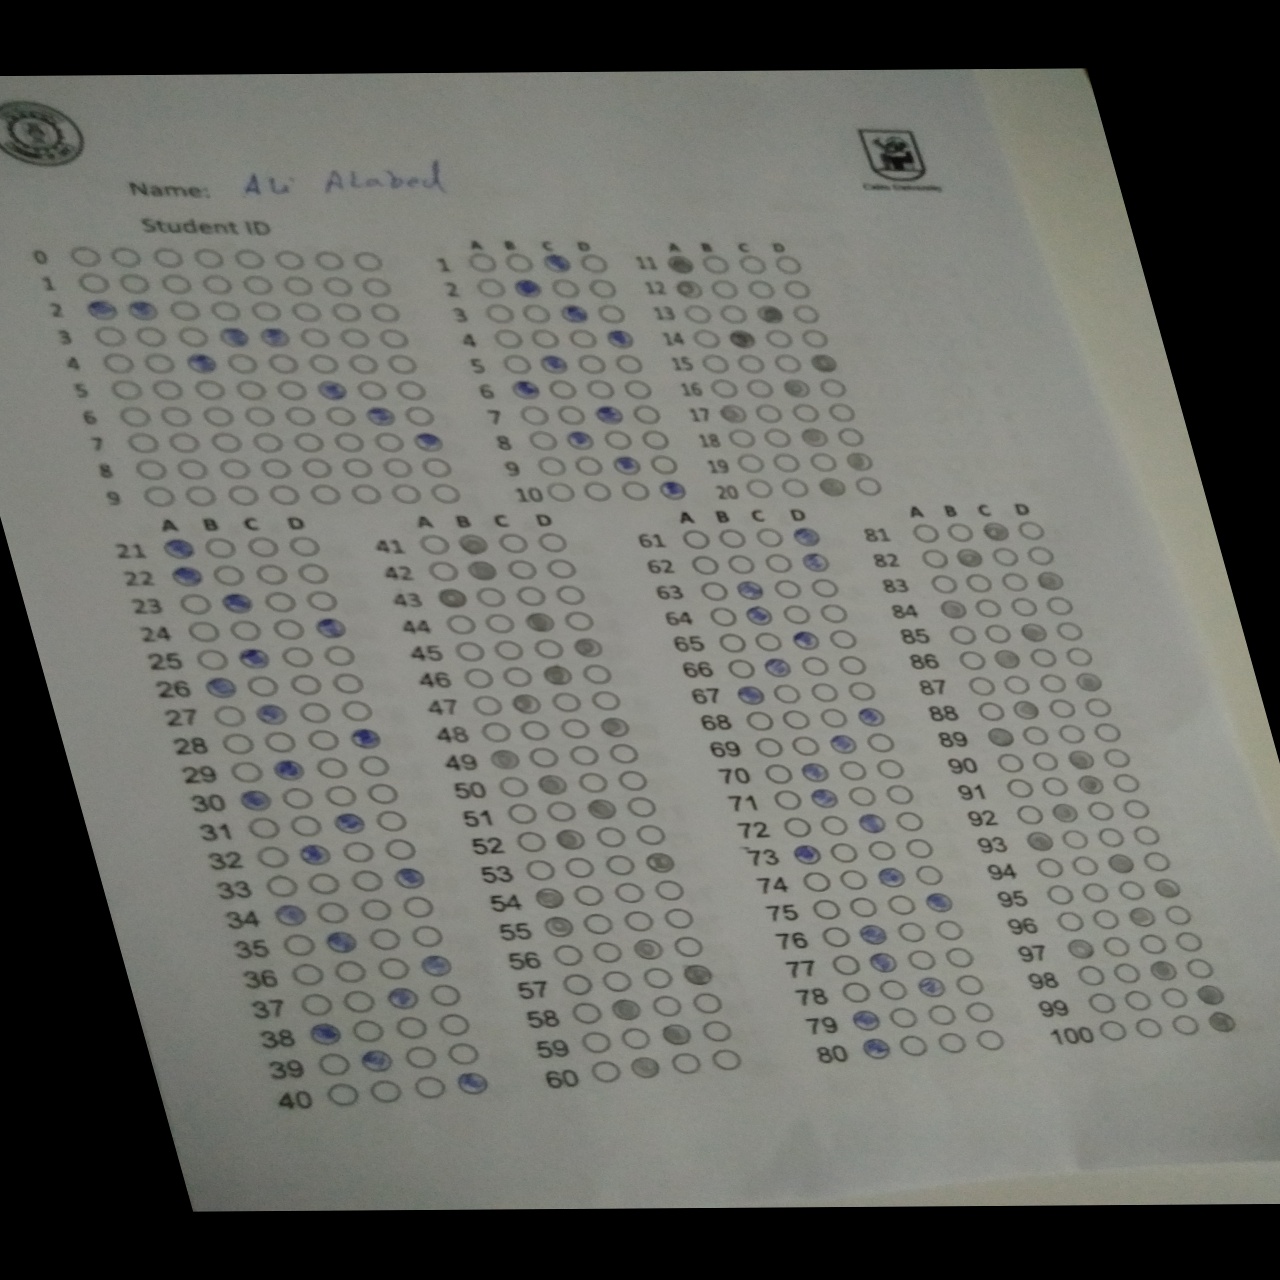 Name: Ali Alabed
Cairo University
Student ID
0
1
2
3
4
5
6
7
8
9
A B C D
1
2
3
4
5
6
7
8
9
10
A B C D
11
12
13
14
15
16
17
18
19
20
A B C D
21
22
23
24
25
26
27
28
29
30
31
32
33
34
35
36
37
38
39
40
A B C D
41
42
43
44
45
46
47
48
49
50
51
52
53
54
55
56
57
58
59
60
A B C D
61
62
63
64
65
66
67
68
69
70
71
72
73
74
75
76
77
78
79
80
A B C D
81
82
83
84
85
86
87
88
89
90
91
92
93
94
95
96
97
98
99
100